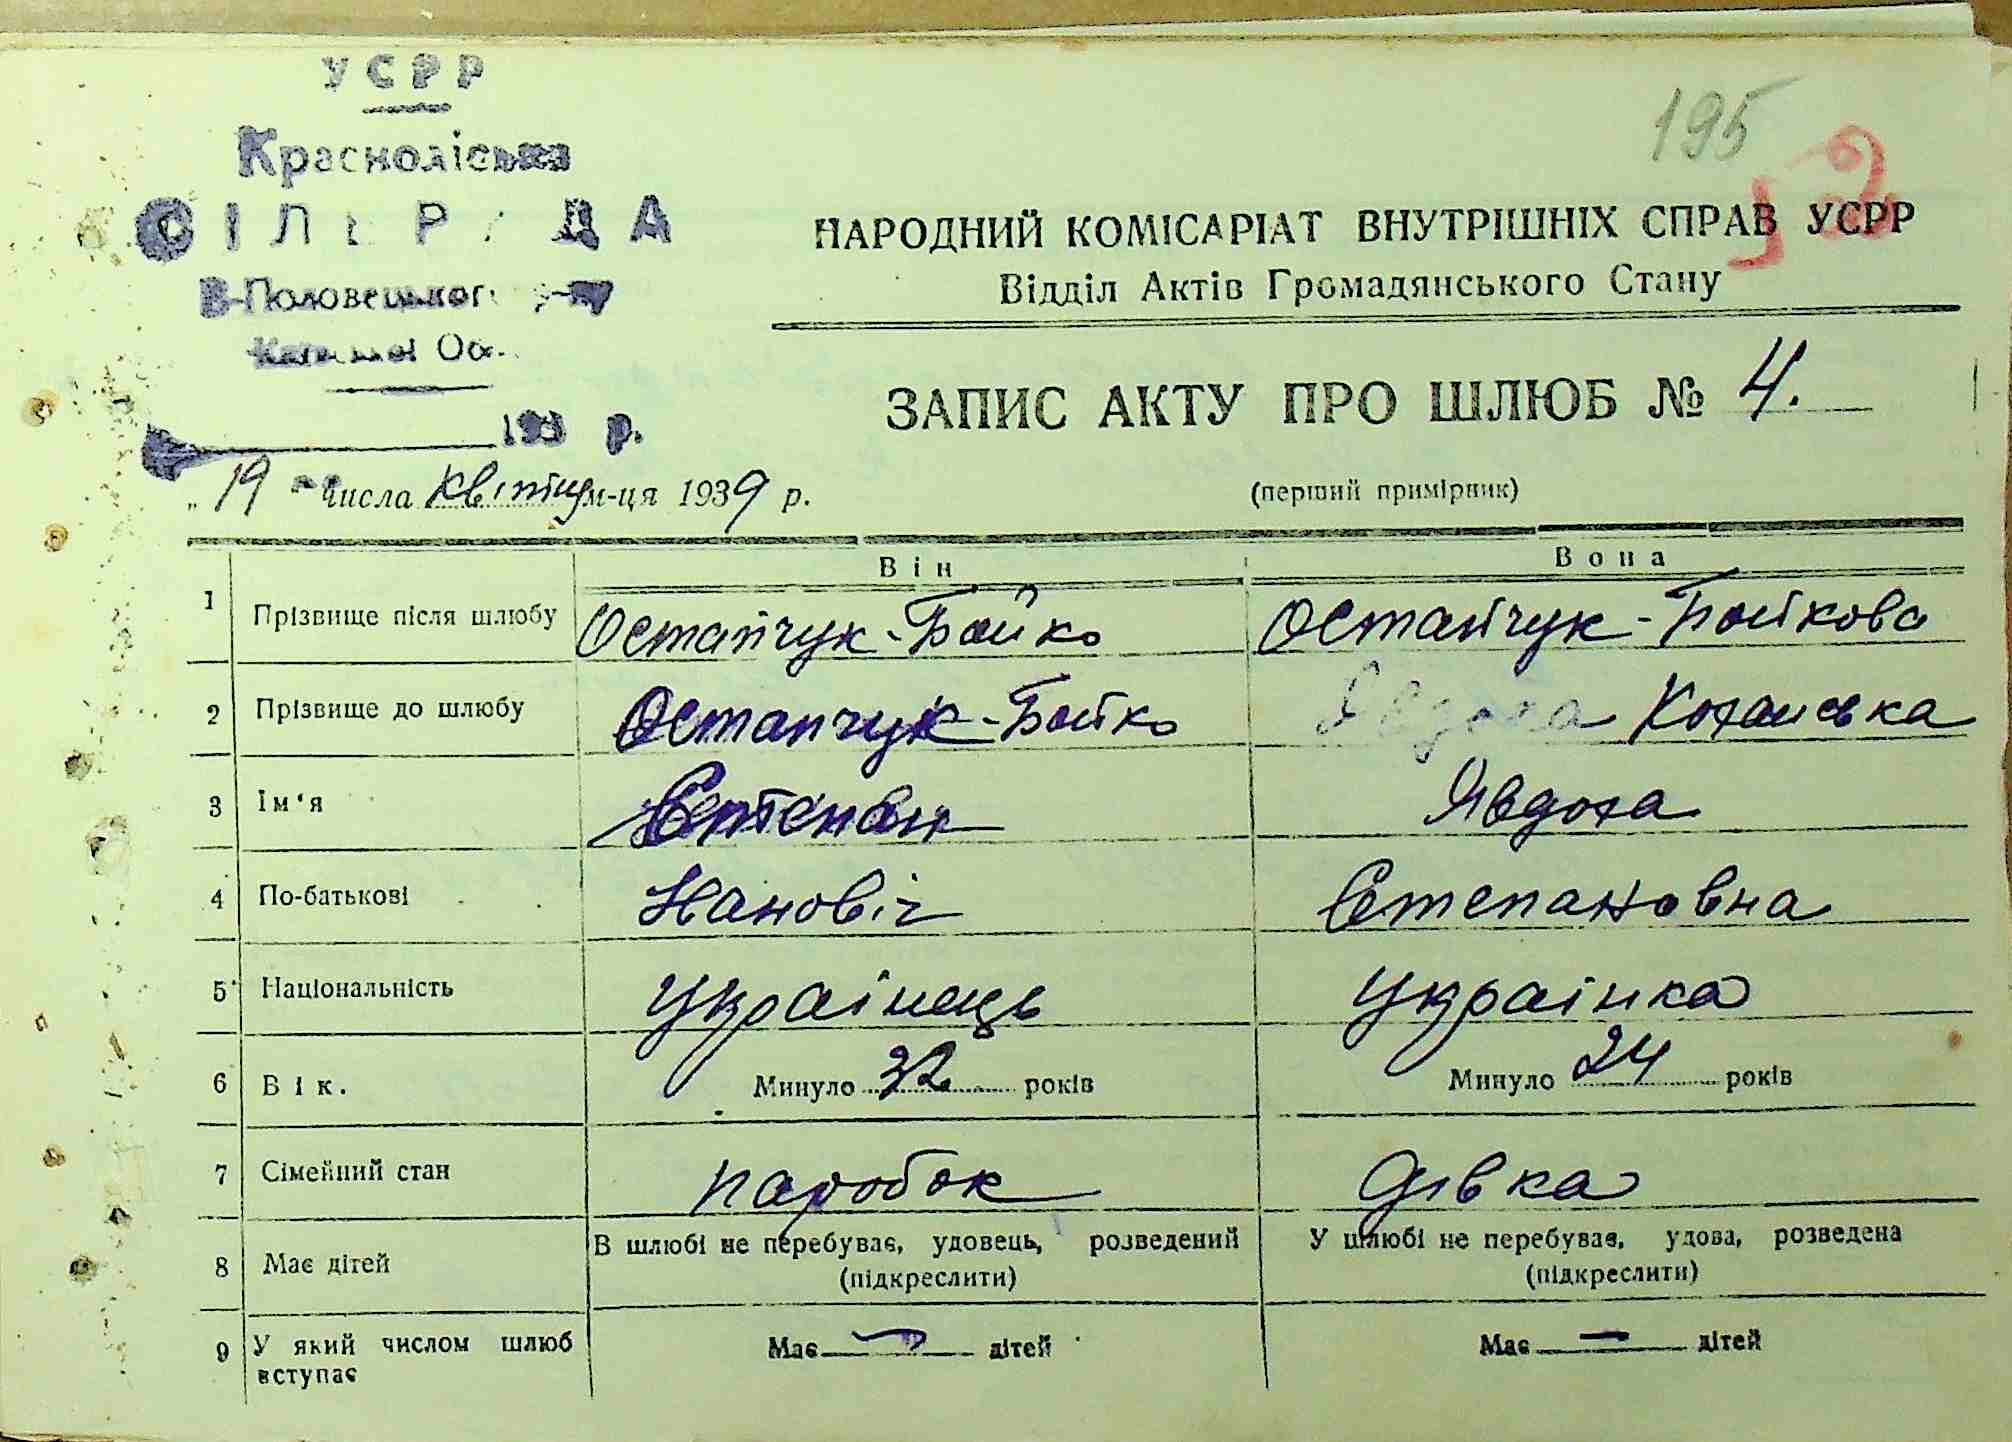 УСРР
Красноліська
СІЛЬРАДА
В-Половецького р-ну
Київської Об.
193 р.
195
52
НАРОДНИЙ КОМІСАРІАТ ВНУТРІШНІХ СПРАВ УСРР
Відділ Актів Громадянського Стану
ЗАПИС АКТУ ПРО ШЛЮБ № 4.
„ 19 " числа квітня м-ця 1939 р.
(перший примірник)
Він Вона
1 Прізвище після шлюбу Остапчук-Бойко Остапчук-Бойкова
2 Прізвище до шлюбу Остапчук-Бойко Явдоха Коханська
3 Ім'я Степан Явдоха
4 По-батькові Іванович Степановна
5 Національність Українець Українка
6 Вік. Минуло 32 років Минуло 24 років
7 Сімейний стан паробок дівка
8 Має дітей В шлюбі не перебуває, удовець, розведений (підкреслити) У шлюбі не перебуває, удова, розведена (підкреслити)
9 У який числом шлюб вступає Має — дітей Має — дітей